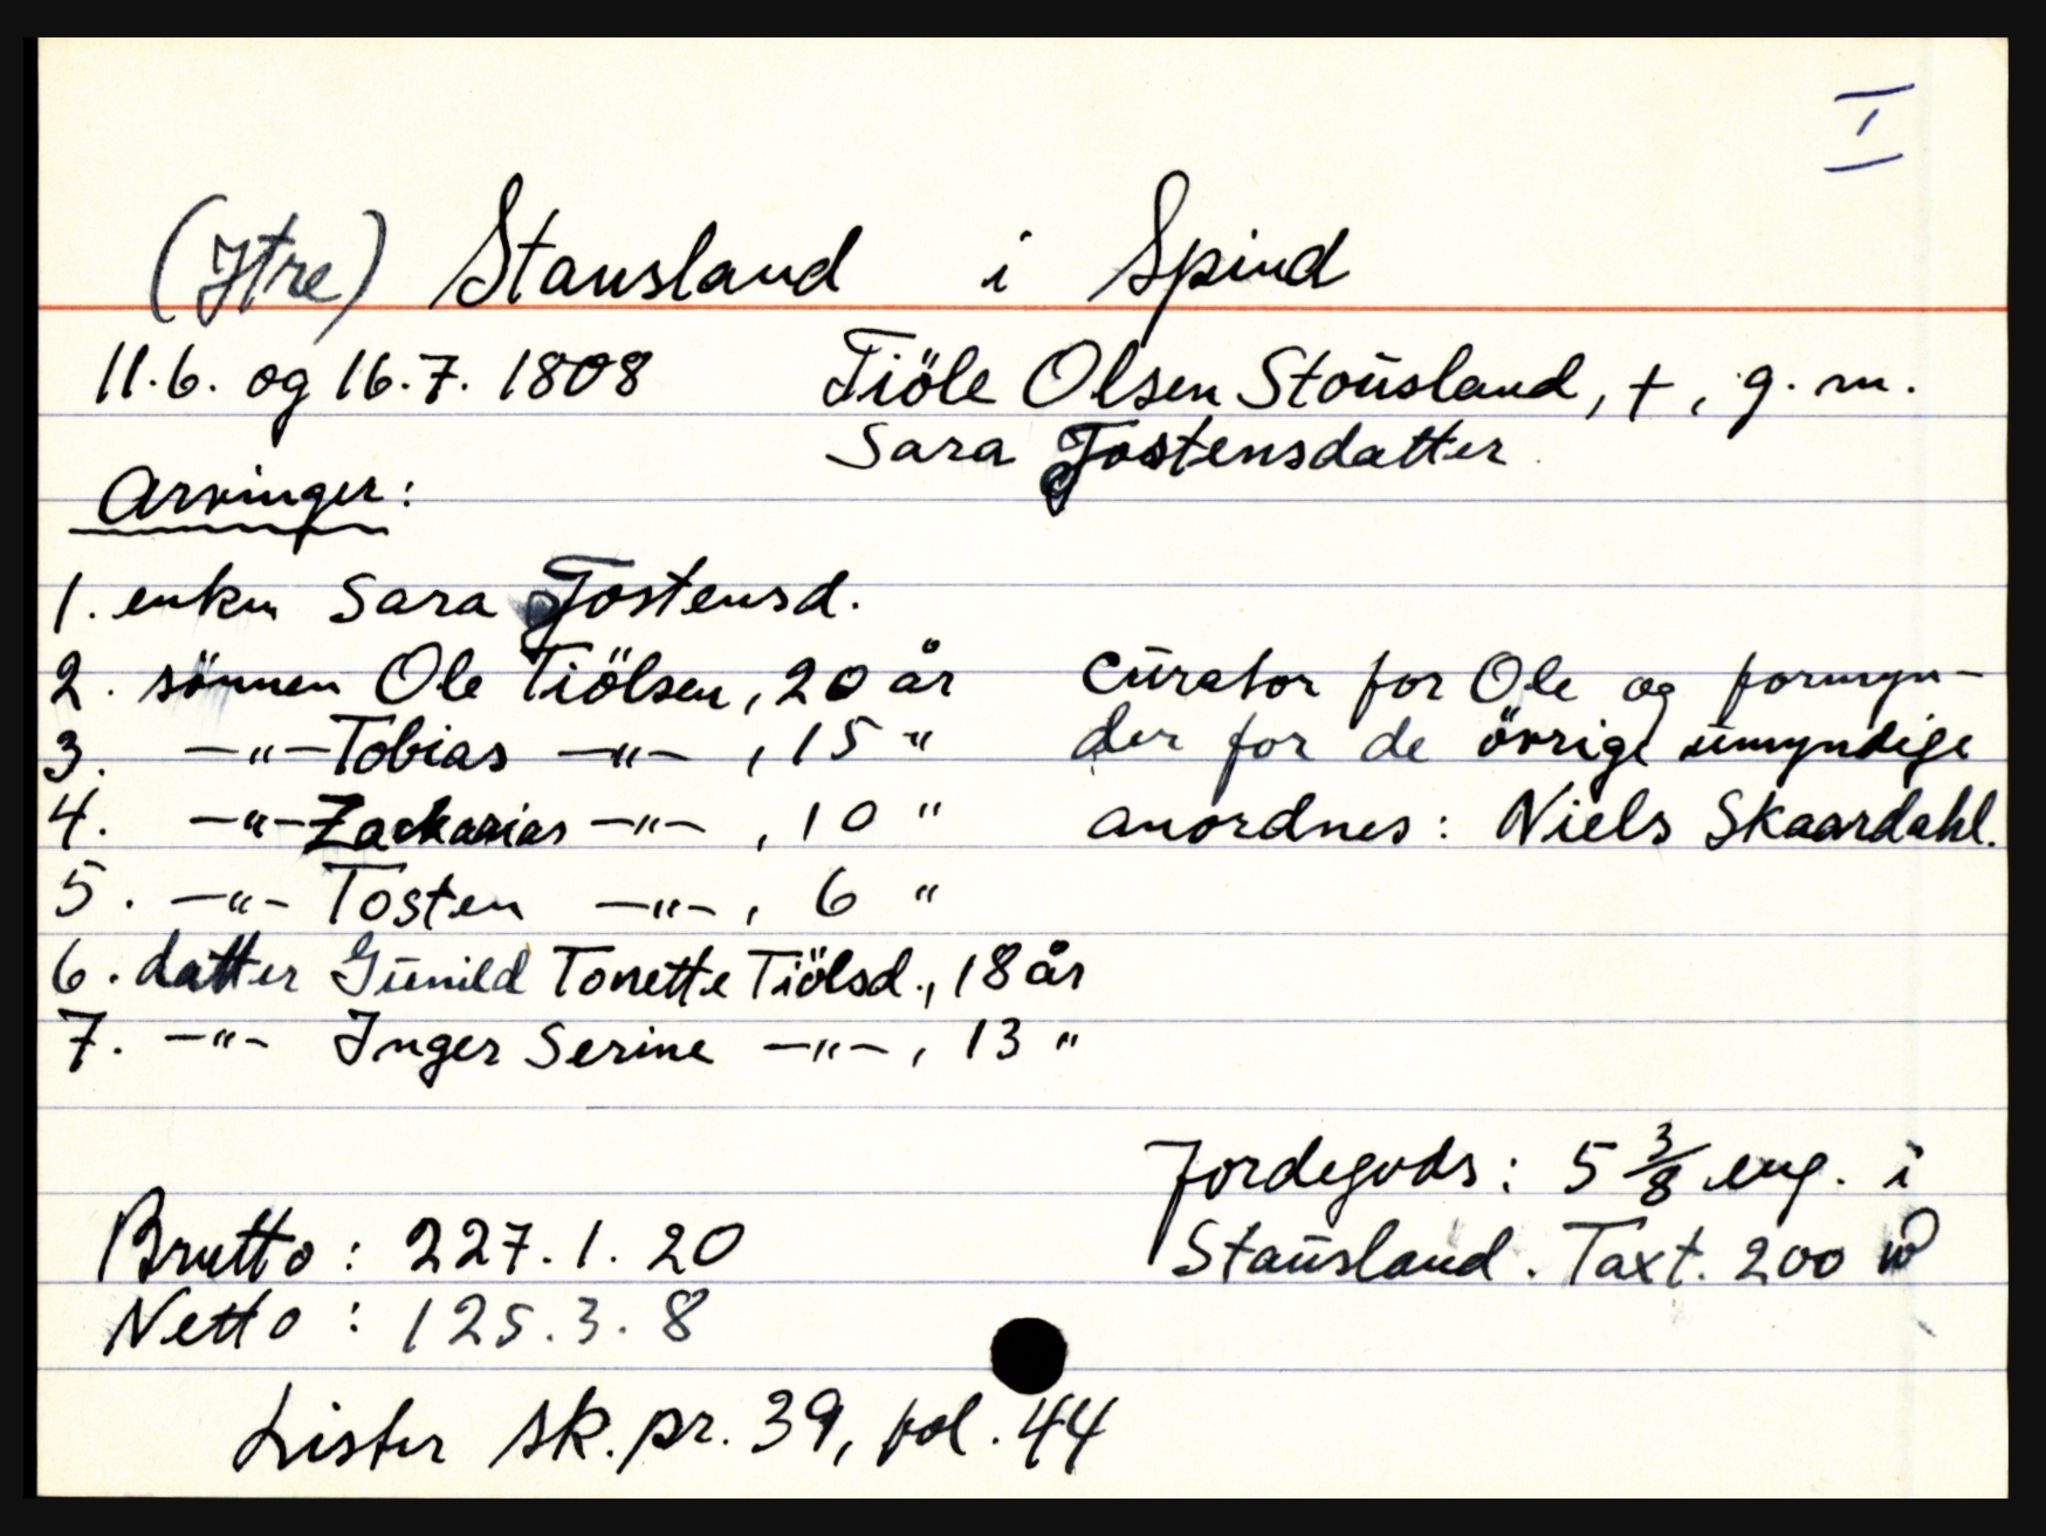 I
(Ytre) Stausland i Spind
11.6. og 16.7. 1808 Tiöle Olsen Stoŭsland, +, g. m.
Sara Tostensdatter
Arvinger:
1. enken Sara Tostensd.
2. sönnen Ole Tiölsen, 20 år Cŭrator for Ole og formyn-
3. -"- Tobias -"-, 15 " der for de övrige ŭmyndige
4. -"- Zackarias -"-, 10 " anordnes: Niels Skaardahl.
5. -"- Tosten -"-, 6 "
6. datter Gŭnild Tonette Tiölsd., 18 år
7. -"- Inger Serine -"-, 13 "
Jordegods: 5 3/8 eng. i
Brutto: 227. 1. 20 Staŭsland. Taxt. 200
Netto: 125. 3. 8
Lister sk. pr. 39, fol. 44